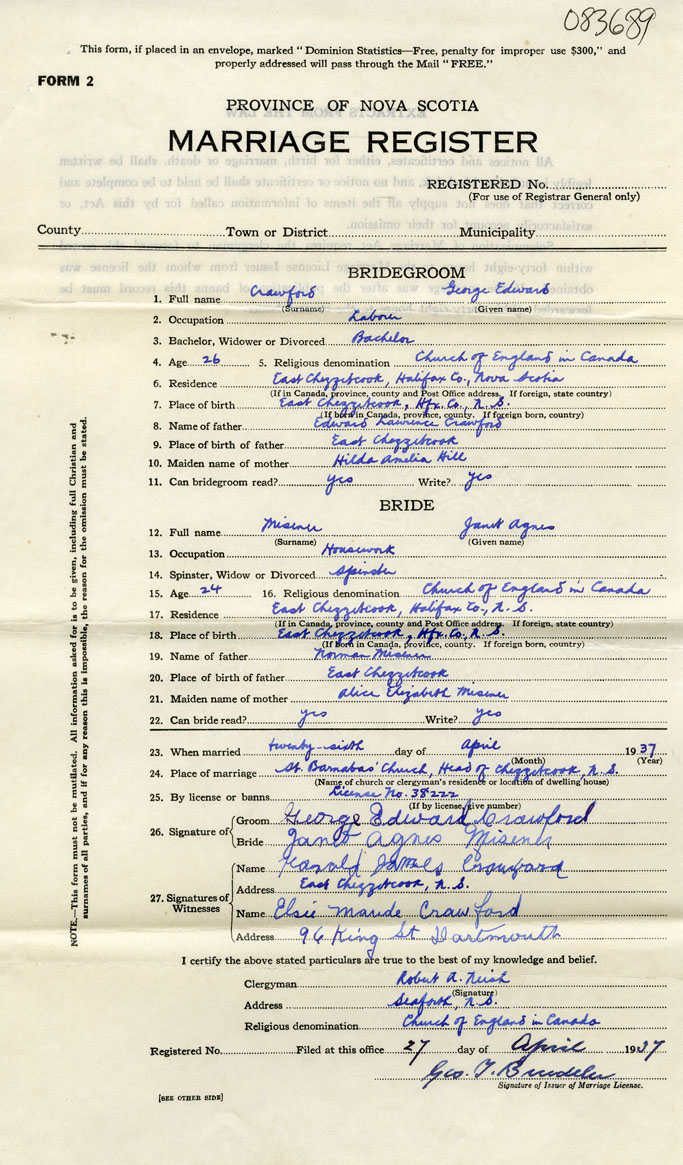 083689
This form, if placed in an envelope, marked "Dominion Statistics—Free, penalty for improper use $300," and
properly addressed will pass through the Mail "FREE."
FORM 2
PROVINCE OF NOVA SCOTIA
MARRIAGE REGISTER
REGISTERED No.
(For use of Registrar General only)
County Town or District Municipality
BRIDEGROOM
1. Full name Crawford George Edward
(Surname) (Given name)
2. Occupation Labour
3. Bachelor, Widower or Divorced Bachelor
4. Age 26 5. Religious denomination Church of England in Canada
6. Residence East Chezzetcook, Halifax Co., Nova Scotia
(If in Canada, province, county and Post Office address. If foreign, state country)
7. Place of birth East Chezzetcook, Hfx. Co., N.S.
(If born in Canada, province, county. If foreign born, country)
8. Name of father Edward Lawrence Crawford
9. Place of birth of father East Chezzetcook
10. Maiden name of mother Hilda Amelia Hill
11. Can bridegroom read? yes Write? yes
BRIDE
12. Full name Misener Janet Agnes
(Surname) (Given name)
13. Occupation Housework
14. Spinster, Widow or Divorced Spinster
15. Age 24 16. Religious denomination Church of England in Canada
17. Residence East Chezzetcook, Halifax Co., N.S.
(If in Canada, province, county and Post Office address. If foreign, state country)
18. Place of birth East Chezzetcook, Hfx. Co., N.S.
(If born in Canada, province, county. If foreign born, country)
19. Name of father Norman Misener
20. Place of birth of father East Chezzetcook
21. Maiden name of mother Alice Elizabeth Misener
22. Can bride read? yes Write? yes
23. When married twenty-sixth day of April 1937
(Month) (Year)
24. Place of marriage St. Barnabas' Church, Head of Chezzetcook, N.S.
(Name of church or clergyman's residence or location of dwelling house)
25. By license or banns License No. 38222
(If by license, give number)
26. Signature of Groom George Edward Crawford
Bride Janet Agnes Misener
27. Signatures of Witnesses
Name Harald James Crawford
Address East Chezzetcook, N.S.
Name Elsie Maude Crawford
Address 96 King St Dartmouth
I certify the above stated particulars are true to the best of my knowledge and belief.
Clergyman Robert A.
(Signature)
Address Seaforth, N.S.
Religious denomination Church of England in Canada
Registered No. Filed at this office 27 day of April 1937
Geo. T.
Signature of Issuer of Marriage License.
[SEE OTHER SIDE]
NOTE.—This form must not be mutilated. All information asked for is to be given, including full Christian and
surnames of all parties, and if for any reason this is impossible, the reason for the omission must be stated.